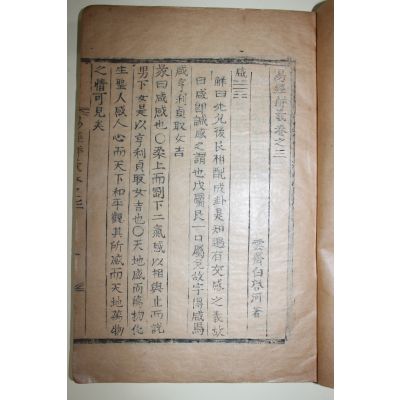 易經解義卷之二
雲齋白啓河著
咸
解曰先兌後艮相配成卦是知過有交感之義故
曰咸卽誠感之謂也戊屬艮一口屬兌故字得咸焉
咸亨利貞取女吉
彖曰咸感也〇柔上而剛下二氣感以相與止而說
男下女是以亨利貞取女吉也〇天地感而萬物化
生聖人感人心而天下和平觀其所感而天地萬物
之情可見矣